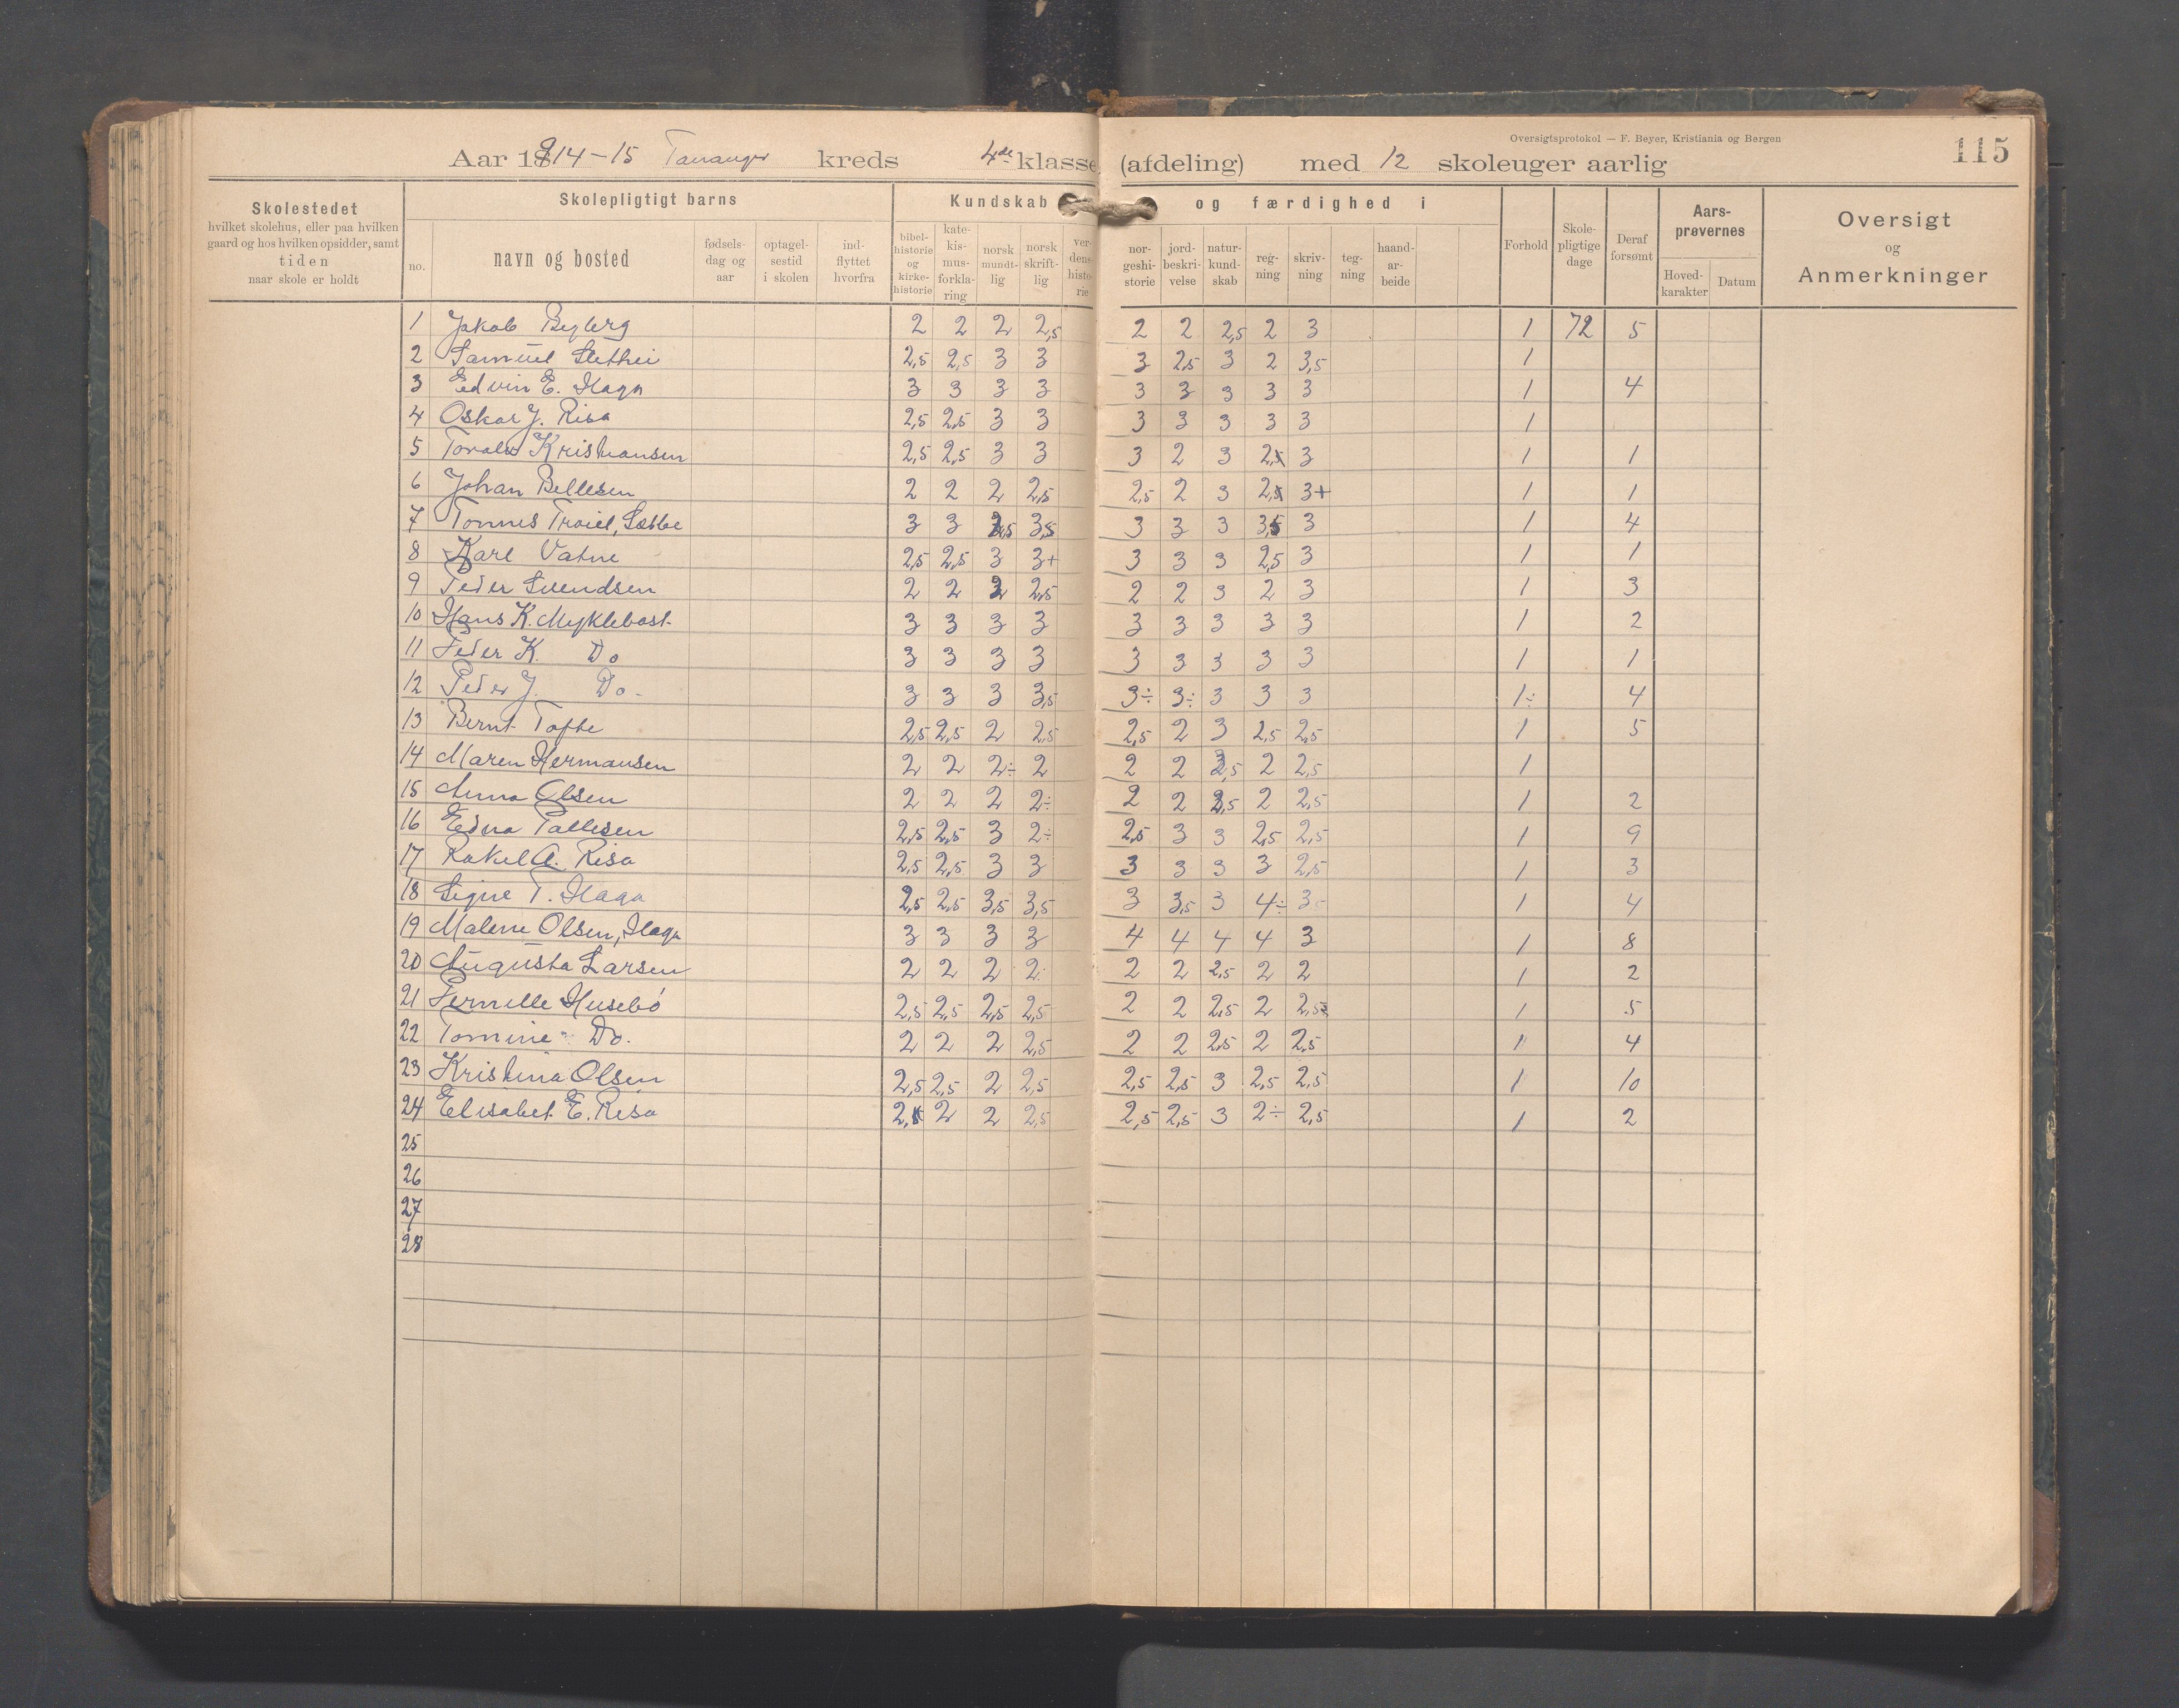 Oversigtsprotokol — F. Beyer, Kristiania og Bergen
115
Aar 1914-15 Tananger kreds 4de klasse (afdeling) med 12 skoleuger aarlig
Skolestedet hvilket skolehus, eller paa hvilken gaard og hos hvilken opsidder, samt tiden naar skole er holdt
Skolepligtigt barns
no. navn og bosted fødsels-dag og aar optagel-sestid i skolen ind-flyttet hvorfra
Kundskab og færdighed i
bibel-historie og kirke-historie kate-kis-mus-forkla-ring norsk mundt-lig norsk skrift-lig ver-dens-histo-rie nor-geshi-storie jord-beskri-velse natur-kund-skab reg-ning skriv-ning teg-ning haand-ar-beide
Forhold Skole-pligtige dage Deraf forsømt
Aars-prøvernes Hoved-karakter Datum
Oversigt og Anmerkninger
1 Jakob Byberg 2 2 2 2,5 2 2 2,5 2 3 1 72 5
2 Samuel Slethei 2,5 2,5 3 3 3 2,5 3 2 3,5 1
3 Edvin E. Haga 3 3 3 3 3 3 3 3 3 1 4
4 Oskar J. Risa 2,5 2,5 3 3 3 3 3 3 3 1
5 Torals Kristiansen 2,5 2,5 3 3 3 2 3 2,5 3 1 1
6 Johan Pellesen 2 2 2 2,5 2,5 2 3 2,5 3+ 1 1
7 Tonnes Sæbbe 3 3 3,5 3 3 3 3,5 3 1 4
8 Karl Vatne 2,5 2,5 3 3+ 3 3 3 2,5 3 1 1
9 Peder Svendsen 2 2 2 2,5 2 2 3 2 3 1 3
10 Hans K. Myklebost 3 3 3 3 3 3 3 3 3 1 2
11 Peder K. Do 3 3 3 3 3 3 3 3 3 1 1
12 Peder J. Do. 3 3 3 3,5 3÷ 3÷ 3 3 3 1÷ 4
13 Bernt Tofte 2,5 2,5 2 2,5 2,5 2 3 2,5 2,5 1 5
14 Maren Hermansen 2 2 2÷ 2 2 2 2,5 2 2,5 1
15 Anna Olsen 2 2 2 2÷ 2 2 2,5 2 2,5 1 2
16 Edna Pallesen 2,5 2,5 3 2÷ 2,5 3 3 2,5 2,5 1 9
17 Rakel A. Risa 2,5 2,5 3 3 3 3 3 3 2,5 1 3
18 Signe T. Haga 2,5 2,5 3,5 3,5 3 3,5 3 4÷ 3 1 4
19 Malene Olsen, Haga 3 3 3 3 4 4 4 4 3 1 8
20 Augusta Larsen 2 2 2 2 2 2 2,5 2 2 1 2
21 Pernille Husebó 2,5 2,5 2,5 2,5 2 2 2,5 2 2,5 1 5
22 Tomine Do. 2 2 2 2,5 2 2 2,5 2 2,5 1 4
23 Kristina Olsen 2,5 2,5 2 2,5 2,5 2,5 3 2,5 2,5 1 10
24 Elisabet E. Risa 2 2 2,5 2,5 2,5 3 2÷ 2,5 1 2
25
26
27
28